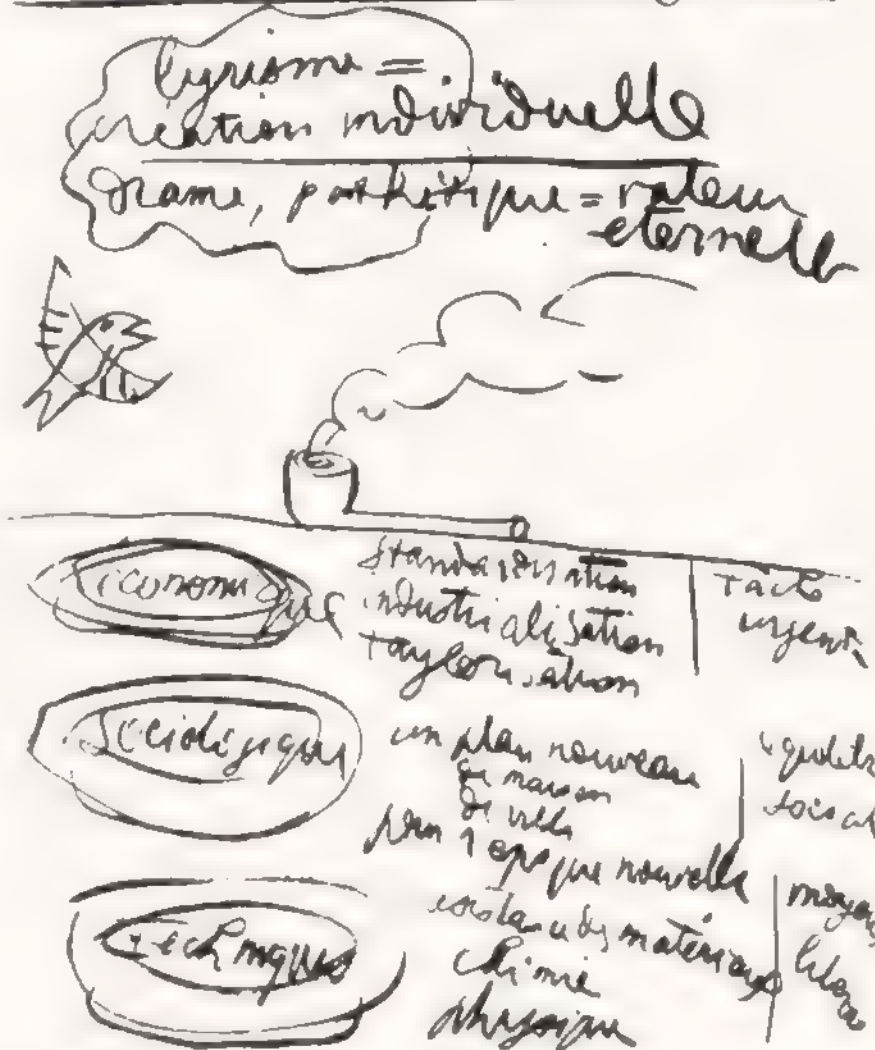 lyrisme =
création individuelle
Drame, pathétique = valeur
eternelle
Economique
Standardisation
industrialisation
taylorisation
tache
urgente
Sociologique
un plan nouveau
de maison
de ville
pour l'epoque nouvelle
Techniques
résistance des matériaux
chimie
physique